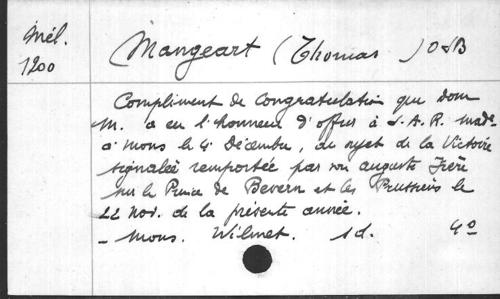 Mél. 1200
Mangeart (Thomas) OSB
Compliment de congratulation que dom
M. a eu l'honneur d'offrir à S. A. R. made
à Mons le 4 Décembre, au sujet de la Victoire
signalée remportée par son auguste Frère
sur le Prince de Bevern et les Prussiens le
22 Nov. de la présente année.
- Mons. Wilmet. s d. 4º